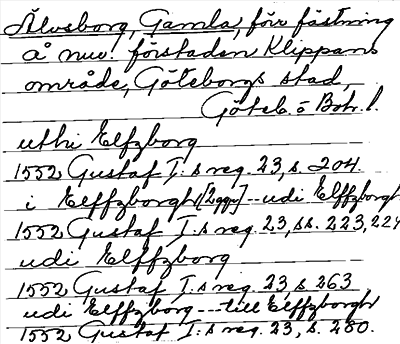 Älvsborg, Gamla, förr fästning
å nuv. förstaden Klippans
område, Göteborgs stad,
Göteb. o Boh. l.
uthi Elfzborg
1552 Gustaf I:s reg. 23, s. 204.
i Elffzborgh [2 ggr] -- udi Elffzborgh
1552 Gustaf I:s reg. 23, ss. 223, 224
udi Elffzborg
1552 Gustaf I:s reg. 23 s 263,
udi Elffzborg --- till Elffzborgh
1552 Gustaf I:s reg. 23, s. 280.